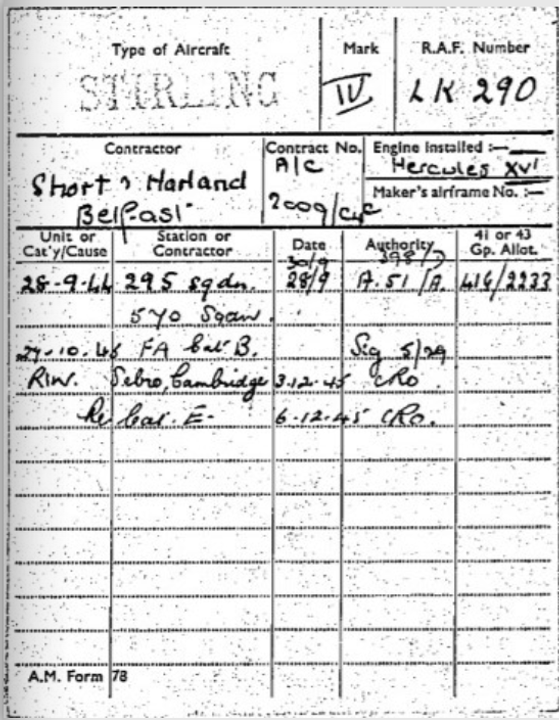 Type of Aircraft
Mark
R.A.F. Number
STIRLING
IV
LK 290
Contractor
Contract No.
Engine Installed :—
Short & Harland
Belfast
A/C
2009/C4C
Hercules XVI
Maker's airframe No. :—
Unit or Cat'y/Cause
Station or Contractor
Date
Authority
41 or 43 Gp. Allot.
30/9 398/7
28-9-44 295 sqdn. 28/9 A.51/A. 416/2233
570 Sqdn.
27-10-45 FA Cat B. Sig 5/29
RIW. Sebro, Cambridge 3.12.45 CRO
Re Cat. E. 6.12.45 CRO.
A.M. Form 78